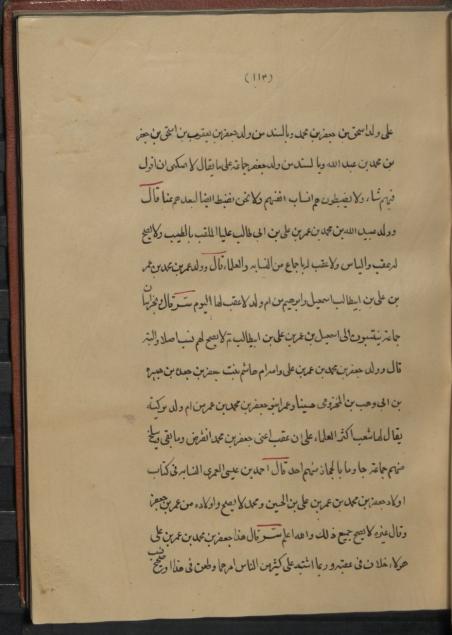 (١١٣)
على ولد اسحق بن جعفر بن محمد وبالسند من ولد جعفر بن يعقوب بن اسحق بن جعفر
بن محمد بن عبد الله وبالسند من ولد جعفر جماعة على ما يقال لا يمكنني ان اقول
فيهم شئا، ولا يضبطون هم انساب انفسهم ولا نحن نضبط ايضا لبعدهم عنا قال
وولد عبيد الله بن محمد بن عمر بن على بن ابى طالب عليا الملقب بالطبيب ولا يصح
له عقب والياس ولا عقب له باجماع من النسابه والعلماء قال وولد عمر بن محمد بن عمر
بن على بن ابيطالب اسمعيل وابرهيم من ام ولد لا عقب لهما اليوم قال
جماعة ينتسبون الى اسمعيل بن عمر بن على بن ابيطالب لا يصح لهم نسب اصلا والبتة
قال وولد جعفر بن محمد بن عمر بن على وامه ام هاشم بنت جعفر بن جعدة بن هبيرة
بن ابى وهب بن المخزومى حسينا وعمر ابنو جعفر بن محمد بن عمر من ام ولد نوبية
يقال لها شعب اكثر العلماء على ان عقب اعنى جعفر بن محمد انقرض وما بقى
منهم جماعة جاوبا بالحجاز منهم احد قال احمد بن عيسى العمرى النسابه فى كتاب
اولاد جعفر بن محمد بن عمر بن على بن الحسين ومحمد لا يصح واولاده من عمر بن جعفر
وقال غيره لا يصح جميع ذلك والله اعلم قال هذا جعفر بن محمد بن عمر بن على
هولاء خلاف فى عقبه وربما اشتبه على كثير من الناس امرهما وطعن فى هذا